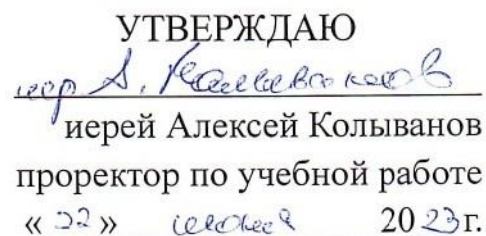 УТВЕРЖДАЮ
иер А.
иерей Алексей Колыванов
проректор по учебной работе
« 22 » июня 2023 г.